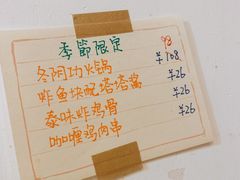 季節限定
98
冬阴功火锅 ¥108
炸鱼块配塔塔酱 ¥26
泰味炸鸡骨 ¥26
咖喱鸡肉串 ¥26